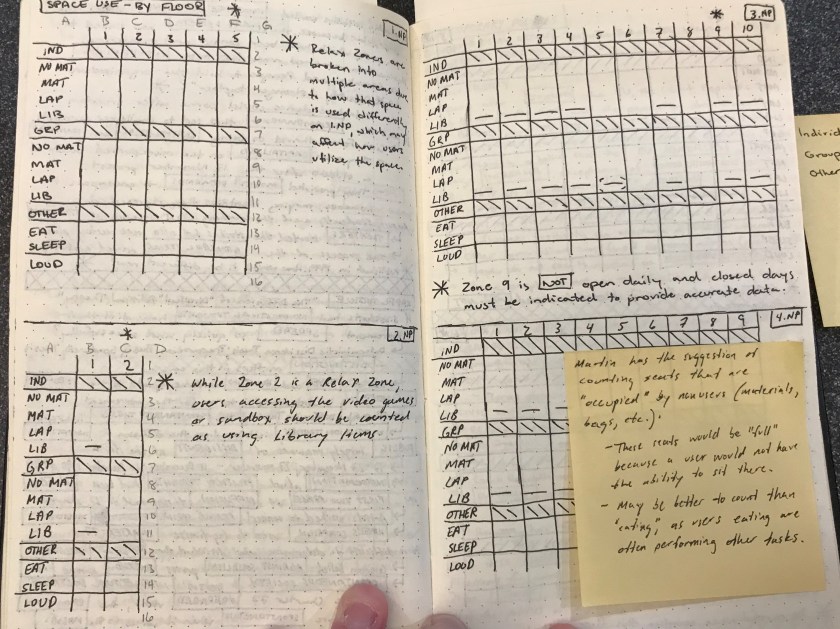 SPACE USE - BY FLOOR
1.NP
A B C D E F G
* 
1 2 3 4 5
IND
NO MAT
MAT
LAP
LIB
GRP
NO MAT
MAT
LAP
LIB
OTHER
EAT
SLEEP
LOUD
1
2
3
4
5
6
7
8
9
10
11
12
13
14
15
16
* Relax Zones are
broken into
multiple areas due
to how that space
is used differently
on 1.NP, which may
affect how users
utilize the space.
2.NP
A B C D
*
1 2
IND
NO MAT
MAT
LAP
LIB
GRP
NO MAT
MAT
LAP
LIB
OTHER
EAT
SLEEP
LOUD
1
2
3
4
5
6
7
8
9
10
11
12
13
14
15
16
* While Zone 2 is a Relax Zone,
users accessing the video games
or sandbox should be counted
as using Library Items.
3.NP
*
1 2 3 4 5 6 7 8 9 10
IND
NO MAT
MAT
LAP
LIB
GRP
NO MAT
MAT
LAP
LIB
OTHER
EAT
SLEEP
LOUD
* Zone 9 is NOT open daily, and closed days
must be indicated to provide accurate data.
4.NP
1 2 3 4 5 6 7 8 9
IND
NO MAT
MAT
LAP
LIB
GRP
NO MAT
MAT
LAP
LIB
OTHER
EAT
SLEEP
LOUD
Martin has the suggestion of
counting seats that are
"occupied" by nonusers (materials,
bags, etc.).
- These seats would be "full"
because a user would not have
the ability to sit there.
- May be better to count than
"eating," as users eating are
often performing other tasks.
Individ
Group
Other